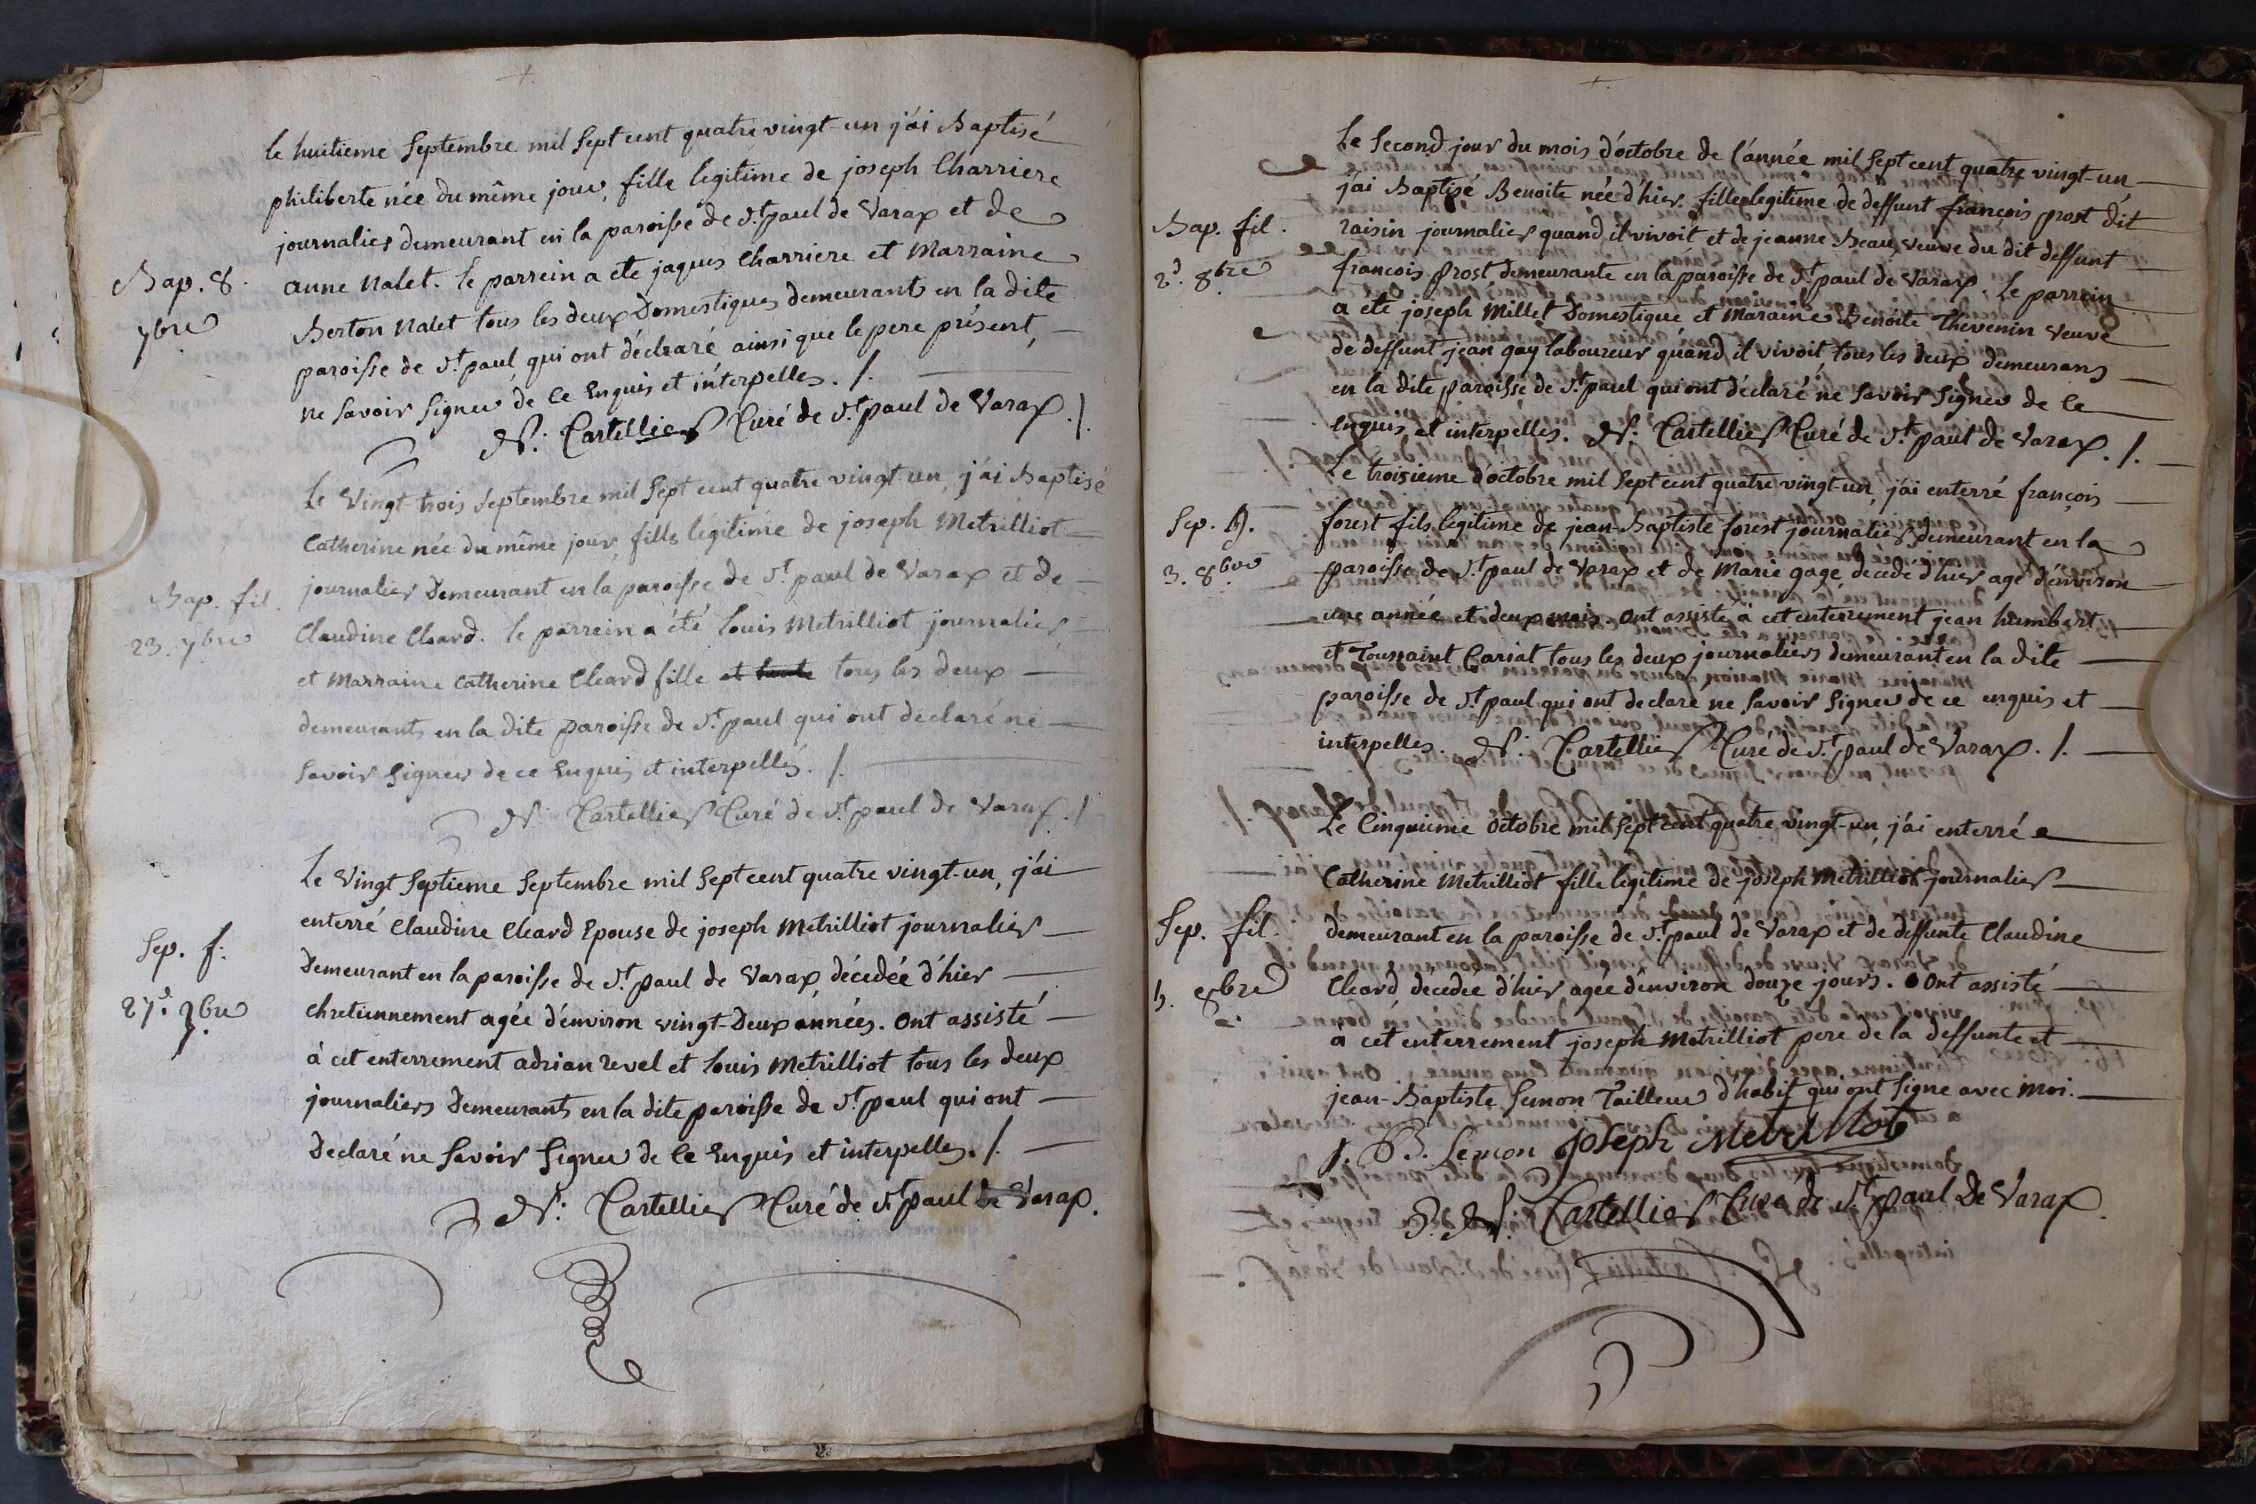 le huitieme septembre mil sept cent quatre vingt-un j'ai Baptisé
philiberte née du même jour, fille legitime de joseph Charriere
journalier demeurant en la paroisse de St. paul de Varax et de
Bap. 8.
7bre
anne Nalet. le parrein a ete jaques Charriere et Marraine
Berton Nalet tous les deux Domestiques demeurants en la dite
paroisse de St. paul qui ont déclaré ainsi que le pere présent,
ne savoir signer de ce Enquis et interpelles. /.
N: Cartellier Curé de St. paul de Varax. /.
Le vingt trois septembre mil sept cent quatre vingt-un, j'ai Baptisé
Catherine née du même jour, fille légitime de joseph Metrilliot
Bap. fil.
23. 7bre
journalier Demeurant en la paroisse de St. paul de Varax et de
Claudine Cleard. le parrein a été louis Metrilliot journalier
et Marraine Catherine Cleard fille et tous les deux
demeurants en la dite paroisse de St. paul qui ont declaré ne
savoir signer de ce Enquis et interpellés. /.
N: Cartellier Curé de St. paul de Varax. /.
Le vingt septieme septembre mil sept cent quatre vingt-un, j'ai
enterré Claudine Cleard Epouse de joseph Metrilliot journalier
Sep. f.
27e. 7bre
Demeurant en la paroisse de St. paul de Varax, décédée d'hier
chretiennement agée d'énviron vingt-Deux années. Ont assisté
à cet enterrement adrian revel et louis Metrilliot tous les deux
journaliers Demeurants en la dite paroisse de St. paul qui ont
Declaré ne savoir signer de Ce Enquis et interpelles. /.
N: Cartellier Curé de St. paul de Varax.
Le second jour du mois d'octobre de l'année mil sept cent quatre vingt-un
j'ai Baptisé Benoite née d'hier, fille legitime de deffunt françois prost dit
Bap. fil.
2d. 8bre
raisin journalier quand il vivoit et de jeanne Beau, veuve du dit deffunt
françois prost demeurante en la paroisse de St. paul de Varax. le parrein
a eté joseph Millet Domestique et Maraine Benoite Thevenin veuve
de deffunt jean gay laboureur quand il vivoit, tous les deux demeurans
en la dite paroisse de St. paul qui ont déclaré ne savoir signer de ce
enquis et interpelles. N: Cartellier Curé de St. paul de Varax. /.
Le troisieme d'octobre mil sept cent quatre vingt-un, j'ai enterré françois
Sep.
3. 8bre
forest fils légitime de jean-Baptiste forest journalier demeurant en la
paroisse de St. paul de Varax et de Marie gage, decede d'hier agé d'environ
une année et deux mois. Ont assisté à cet enterrement jean humbert
et Toussaint Cariat tous les deux journaliers demeurant en la dite
paroisse de St. paul qui ont declare ne savoir signer de ce enquis et
interpelles. N: Cartellier Curé de St. paul de Varax. /.
Le Cinquieme Octobre mil sept cent quatre vingt-un, j'ai enterré
Catherine Metrilliot fille legitime de joseph Metrilliot journalier
Sep. fil.
5. 8bre
demeurant en la paroisse de St. paul de Varax et de deffunte Claudine
Cleard décédée d'hier agée d'énviron douze jours. Ont assisté
à cet enterrement joseph Metrilliot pere de la deffunte et
jean-Baptiste Semon Tailleur d'habit qui ont signe avec moi.
J. B. Semon joseph Metrilliot
N: Cartellier Curé de St. paul De Varax.